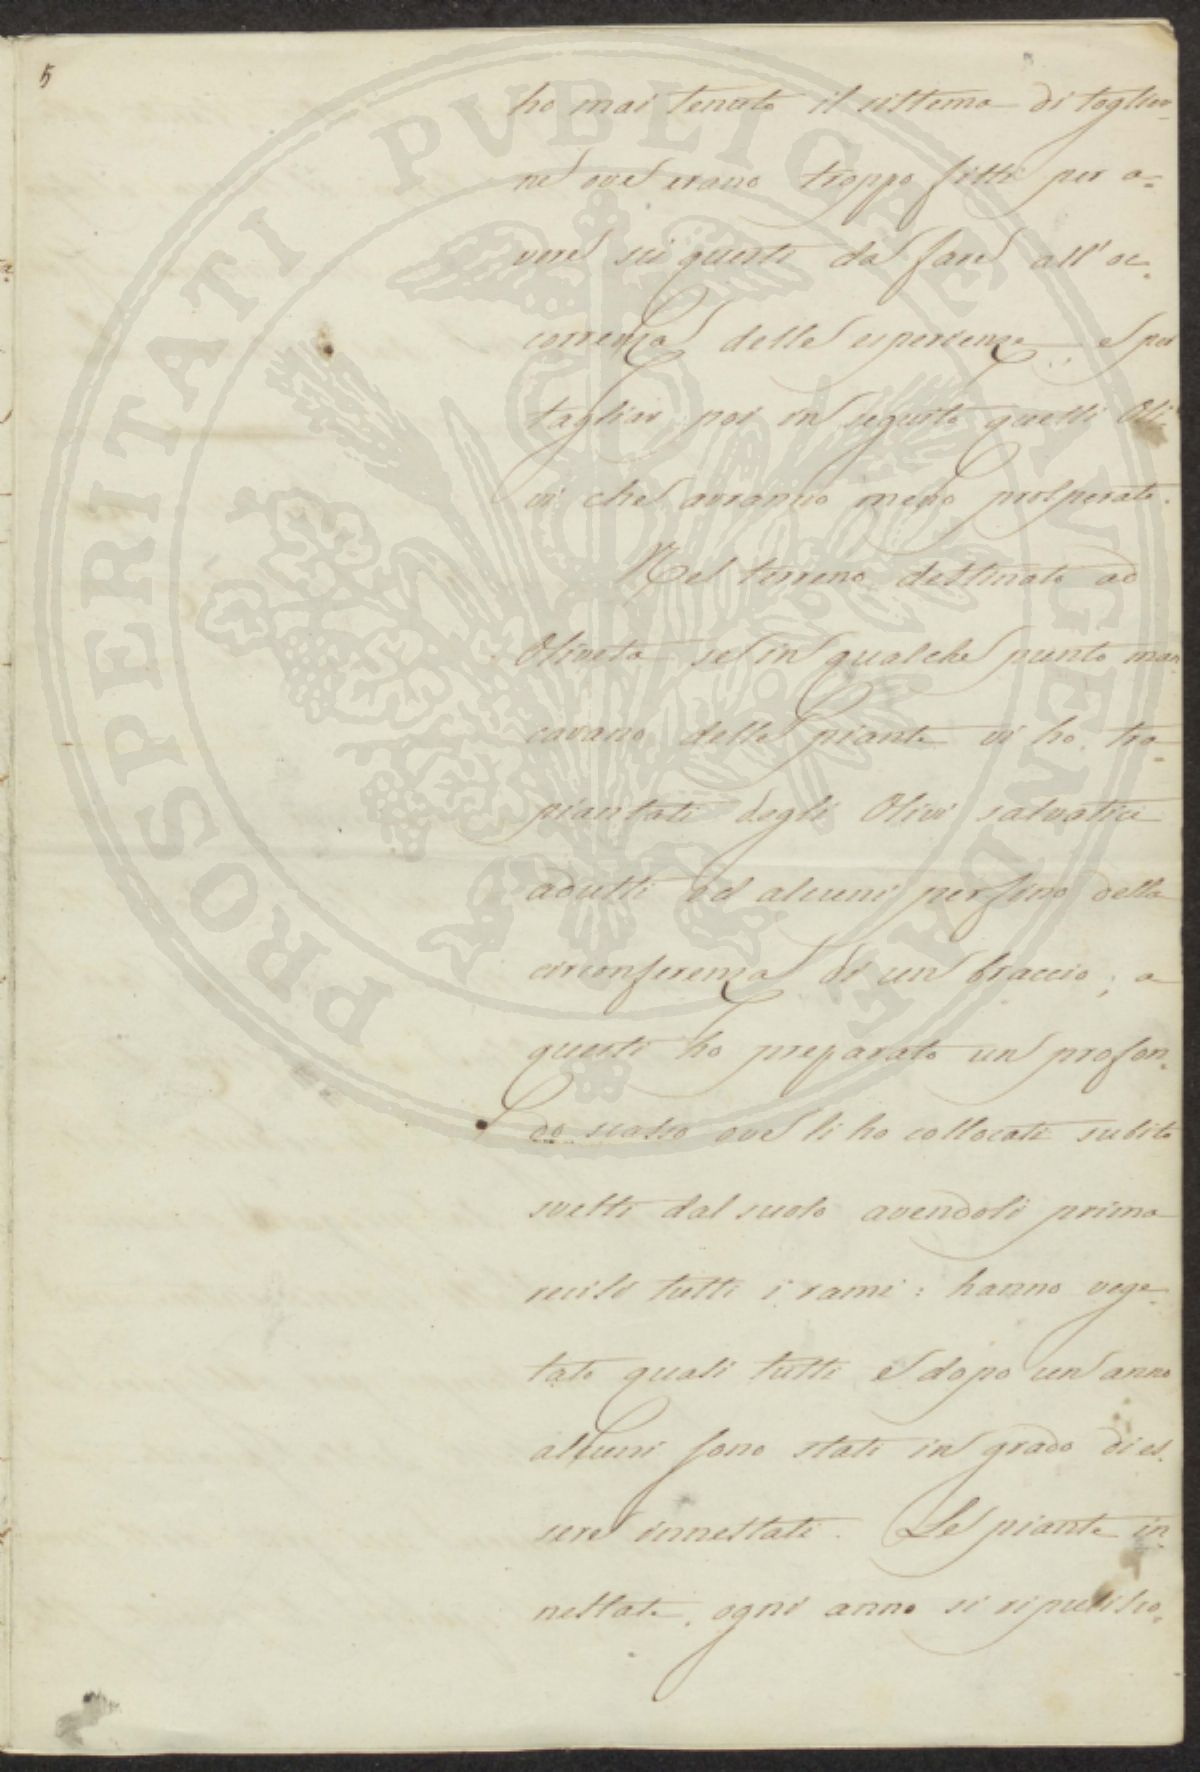 5
ho mai tenuto il sistema di toglier=
ne ove erano troppo fitti per a=
vere su questi da fare all'oc=
correnza delle esperienze, e per
tagliar poi in seguito quelli Oli
vi che avranno meno prosperato.
Nel terreno destinato ad
Oliveta se in qualche punto man
cavano delle piante vi ho tra=
piantati degli Olivi salvatici
adulti ed alcuni perfino della
circonferenza di un braccio; a
questi ho preparato un profon=
do scasso ove li ho collocati subito
svelti dal suolo avendoli prima
recisi tutti i rami: hanno vege=
tato quasi tutti e dopo un anno
alcuni sono stati in grado di es=
sere innestati. Le piante in=
nestate, ogni anno si ripulisco=
PROSPERITATI PVBLICAE AVGENDAE